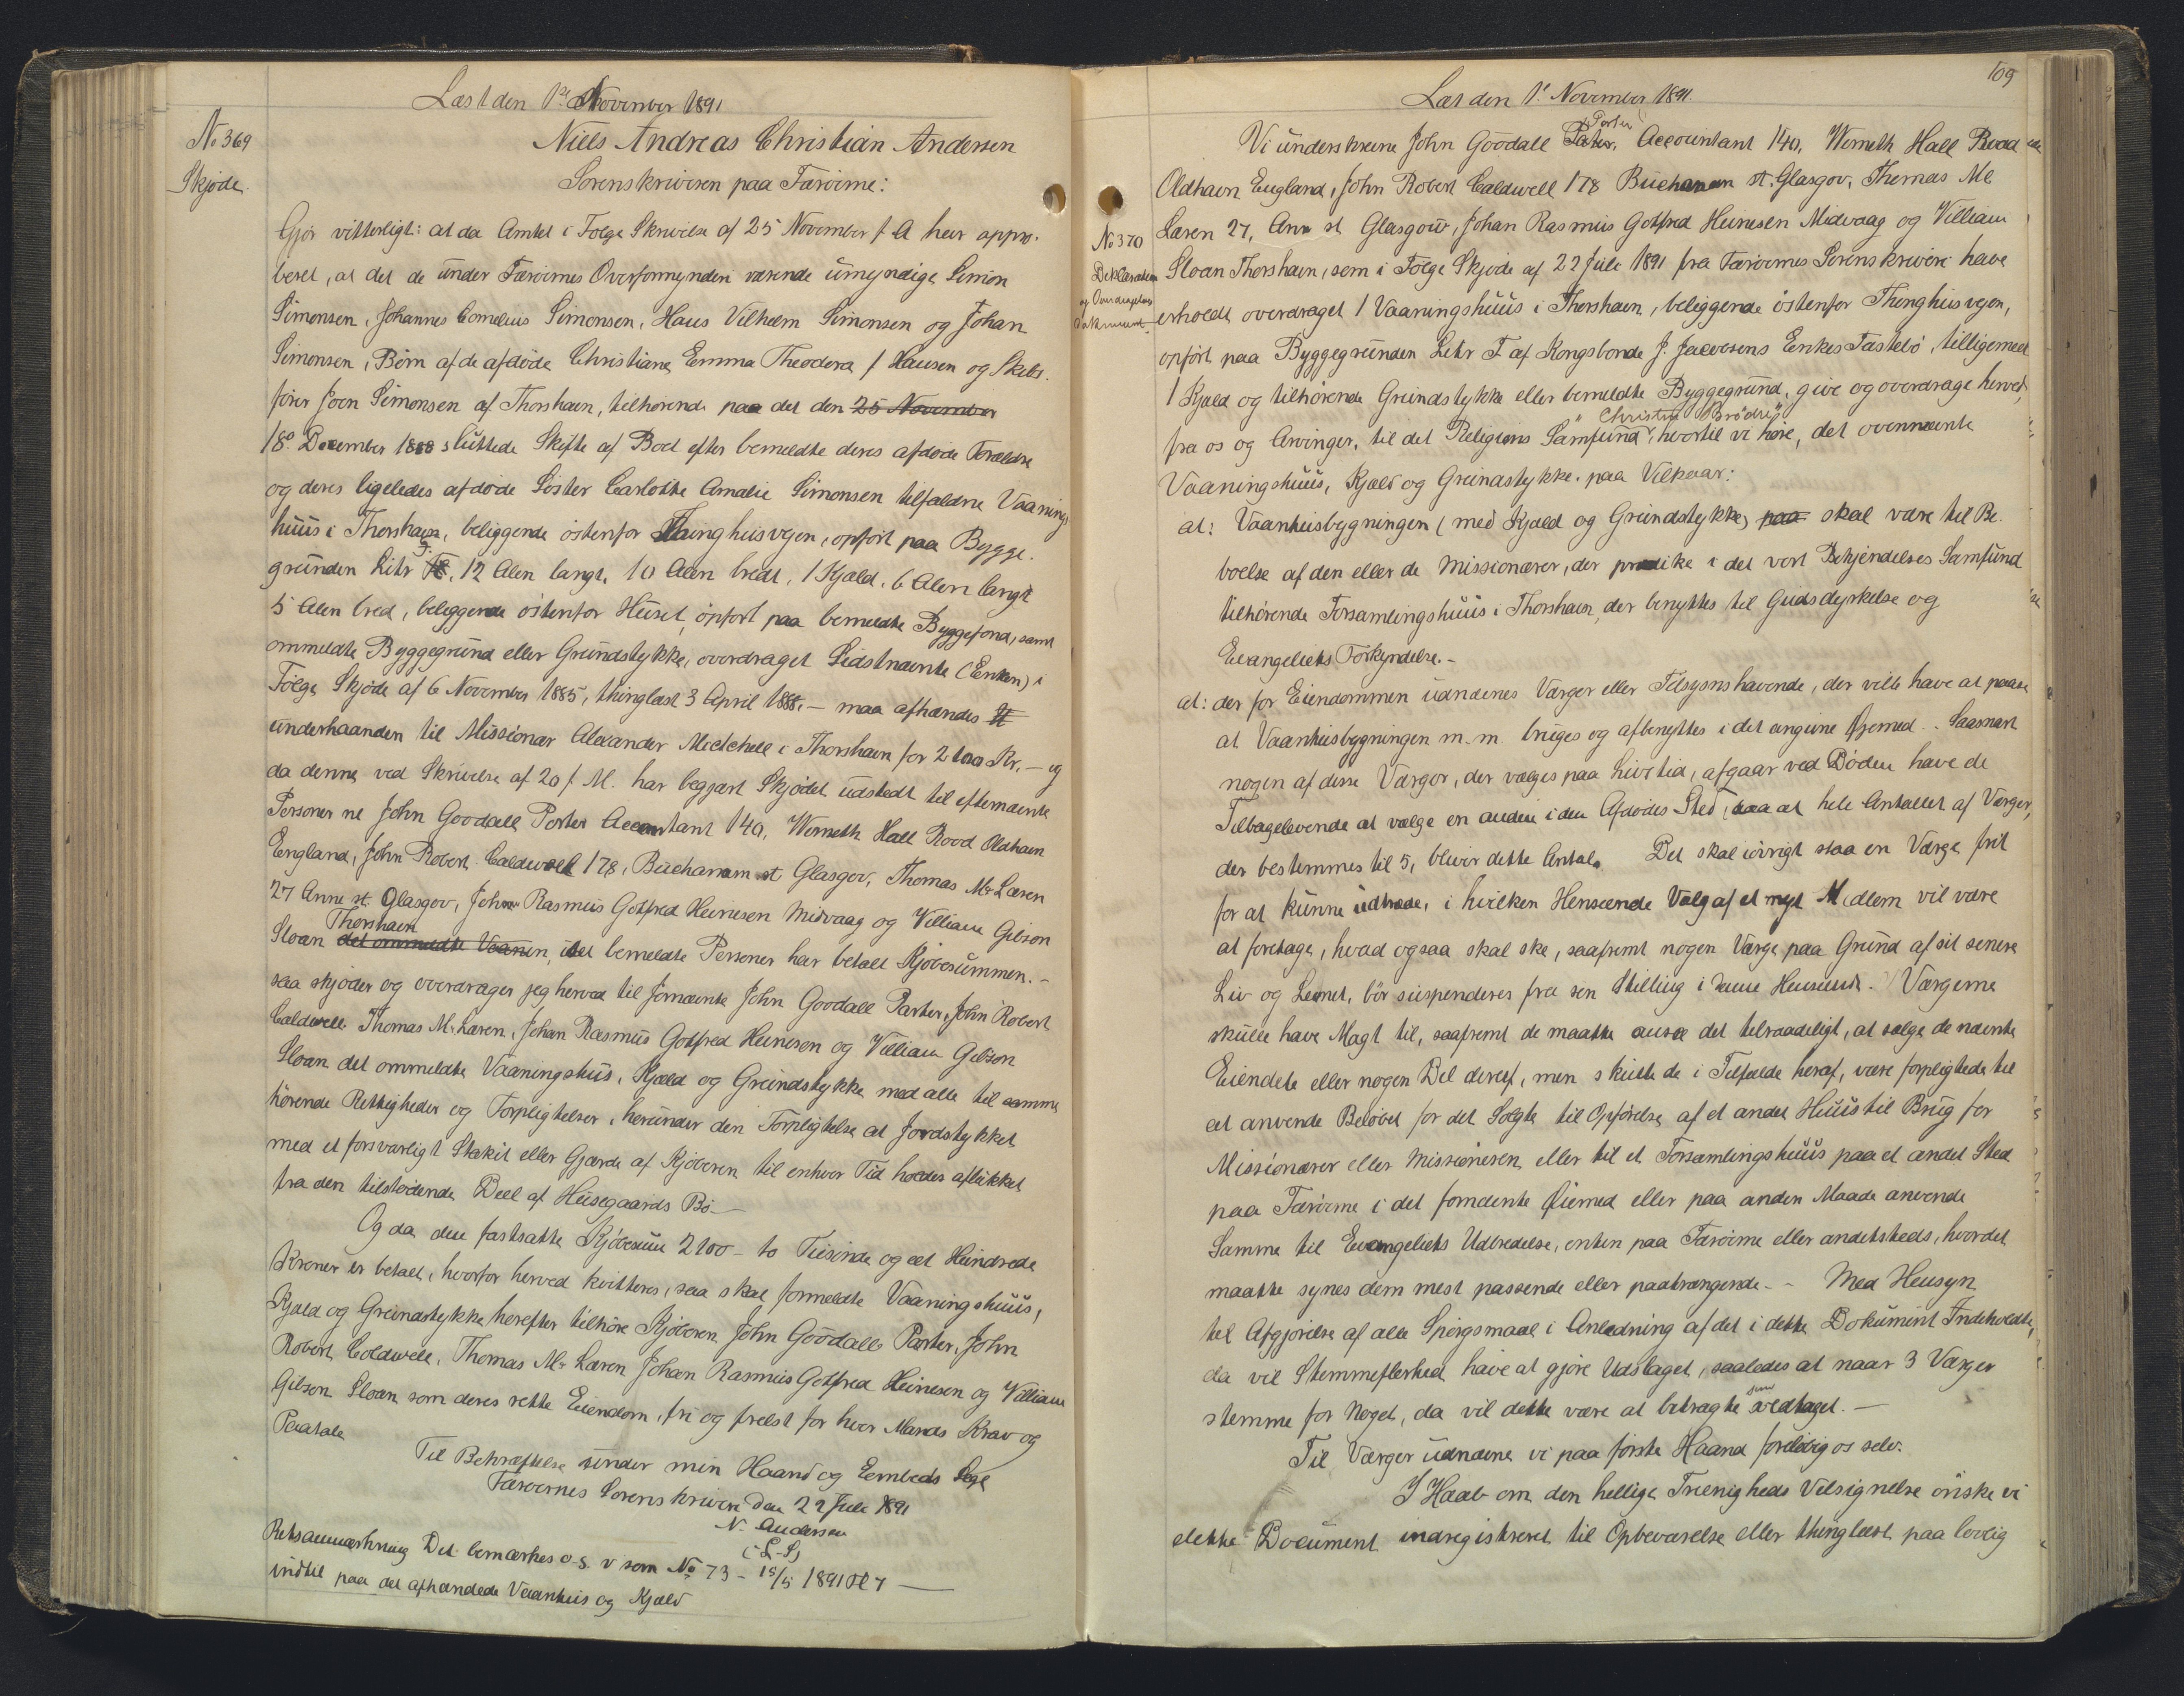 Læst den 1ste November 1891
No 369
Skjøde.
Niels Andreas Christian Andersen
Sorenskriveren paa Færøerne:
Gjør vitterligt: at da Amtet i Følge Skrivelse af 25 November f. A har appro-
beret, at det de under Færøernes Overformynderi værende umyndige Simon
Simonsen, Johannes Cornelius Simonsen, Hans Vilhelm Simonsen og Johan
Simonsen, Børn af de afdøde Christiane Emma Theodora f Hansen og Skibs-
fører Joen Simonsen af Thorshavn, tilhørende paa det den 25 November
18de December 1888 sluttede Skifte af Boet efter bemeldte deres afdøde Forældre
og deres ligeledes afdøde Søster Carlotte Amalie Simonsen tilfaldne Vaanings
huus i Thorshavn, beliggende østenfor Thinghusvejen, opført paa Bygge-
grunden Litr F. 12 Alen langt, 10 Alen bredt, 1 Kjald, 6 Alen langt
5 Alen bred, beliggende østenfor Huset, opført paa bemeldte Byggefond, samt
ommeldte Byggegrund eller Grundstykke, overdraget Sidstnævnte (Enken) i
Følge Skjøde af 6 November 1885, thinglæst 3 April 1888, – maa afhændes
underhaanden til Missionær Alexander Mitchell i Thorshavn for 2100 Kr. – og
da denne ved Skrivelse af 20 f. M. har begjært Skjødet udstedt til efternævnte
Personer nl John Goodall Porter Accountant 140, Werneth Hall Rood Oldham
England, John Robert Caldwell 178, Buchanam st Glasgov, Thomas Mc Laren
27 Anne st. Glasgov, Johan Rasmus Gotfred Heinesen Midvaag og Villiam Gibson
Thorshavn
Sloan det ommeldte Vaanin, idet bemeldte Personer har betalt Kjøbesummen. –
saa skjøder og overdrager jeg herved til fornævnte John Goodall Porter, John Robert
Caldwell Thomas Mc Laren, Johan Rasmus Gotfred Heinesen og Villiam Gibson
Sloan det ommeldte Vaaningshus, Kjald og Grundstykke med alle til samme
hørende Rettigheder og Forpligtelser, herunder den Forpligtelse at Jordstykket
med et forsvarligt Stakit eller Gjærde af Kjøberen til enhver Tid holdes aflukket
fra den tilstødende Deel af Husegaards Bø –
Og da den fastsatte Kjøbesum 2100 – to Tusinde og eet Hundrede
Kroner er betalt, hvorfor herved kvitteres, saa skal formeldte Vaaningshuus,
Kjald og Grundstykke herefter tilhøre Kjøberen John Goodall Porter, John
Robert Caldwell, Thomas Mc Laren Johan Rasmus Gotfred Heinesen og Villiam
Gibson Sloan som deres rette Eiendom, fri og frelst for hver Mands Krav og
Paatale
Til Bekræftelse under min Haand og Eembeds Segl
Færøernes Sorenskriveri den 22 Juli 1891
N. Andersen
(L-S)
Retsanmærkning Det bemærkes o-s. v som No 73 – 15/5 1891
indtil paa det afhændede Vaanhus og Kjald
109
Læst den 1ste November 1891
Porter
Vi underskrevne John Goodall Accountant 140, Werneth Hall Road
Oldham England, John Robert Caldwell 178 Buchanan st. Glasgov, Thomas Mc
No 370
Deklaration
og Overdragelses
Dokument.
Laren 27, Ann st Glasgow, Johan Rasmus Gotfred Heinesen Midvaag og Villiam
Sloan Thorshavn, som i Følge Skjøde af 22 Juli 1891 fra Færøernes Sorenskriveri have
erholdt overdraget 1 Vaaningshuus i Thorshavn, beliggende østenfor Thinghusvejen,
opført paa Byggegrunden Litr F af Kongsbonde J. Jacobsens Enkes Fæstebø, tilligemed
1 Kjald og tilhørende Grundstykke eller bemeldte Byggegrund, give og overdrage herved,
"Christne Brødre"
fra os og Arvinger, til det Religiøns Samfund, hvortil vi høre, det ovennævnte
Vaaningshuus, Kjald og Grundstykke. paa Vilkaar:
at: Vaanhusbygningen (med Kjald og Grundstykke) paa skal være til Be-
boelse af den eller de Missionærer, der prædike i det vort Bekjendelses Samfund
tilhørende Forsamlingshuus i Thorshavn, der benyttes til Gudsdyrkelse og
Evangeliets Forkyndelse. –
at: der for Eiendommen udnævnes Værger eller Tilsynshavende, der ville have at paase
at Vaanhusbygningen m. m. bruges og afbenyttes i det angivne Øjemed. Saasnart
nogen af disse Værger, der vælges paa Livstid, afgaar ved Døden have de
Tilbagelevende at vælge en anden i den Afdødes Sted, saa at hele Antallet af Værger,
der bestemmes til 5, bliver dette Antal. Det skal iøvrigt staa en Værge frit
for at kunne udtræde, i hvilken Henseende Valg af et nyt Medlem vil være
at foretage, hvad ogsaa skal ske, saafremt nogen Værge paa Grund af sit senere
Liv og Levnet, bør suspenderes fra sen Stilling i denne Henseende. Værgerne
skulle have Magt til, saafremt de maatte ansee det tilraadeligt, at sælge de nævnte
Eiendele eller nogen Del deraf, men skulle de i Tilfælde heraf, være forpligtede til
at anvende Beløbet for det Solgte til Opførelse af et andet Huus til Brug for
Missionærer eller Missionæren, eller til et Forsamlingshuus paa et andet Sted
paa Færøerne i det fornævnte Øiemed eller paa anden Maade anvende
Samme til Evangeliets Udbredelse, enten paa Færøerne eller andetsteds, hvordet
maatte synes dem mest passende eller paatrængende – Med Hensyn
til Afgjørelse af alle Spørgsmaal i Anledning af det i dette Dokument Indeholdte,
da vil Stemmeflerhed have at gjøre Udslaget, saaledes at naar 3 Værger
som
stemme for Noget, da vil dette være at betragte vedtaget. –
Til Værger udnævne vi paa første Haand foreløbig os selv.
I Haab om den hellige Trienigheds Velsignelse ønske vi
dette Document indregistreret til Opbevarelse eller thinglæst paa lovlig